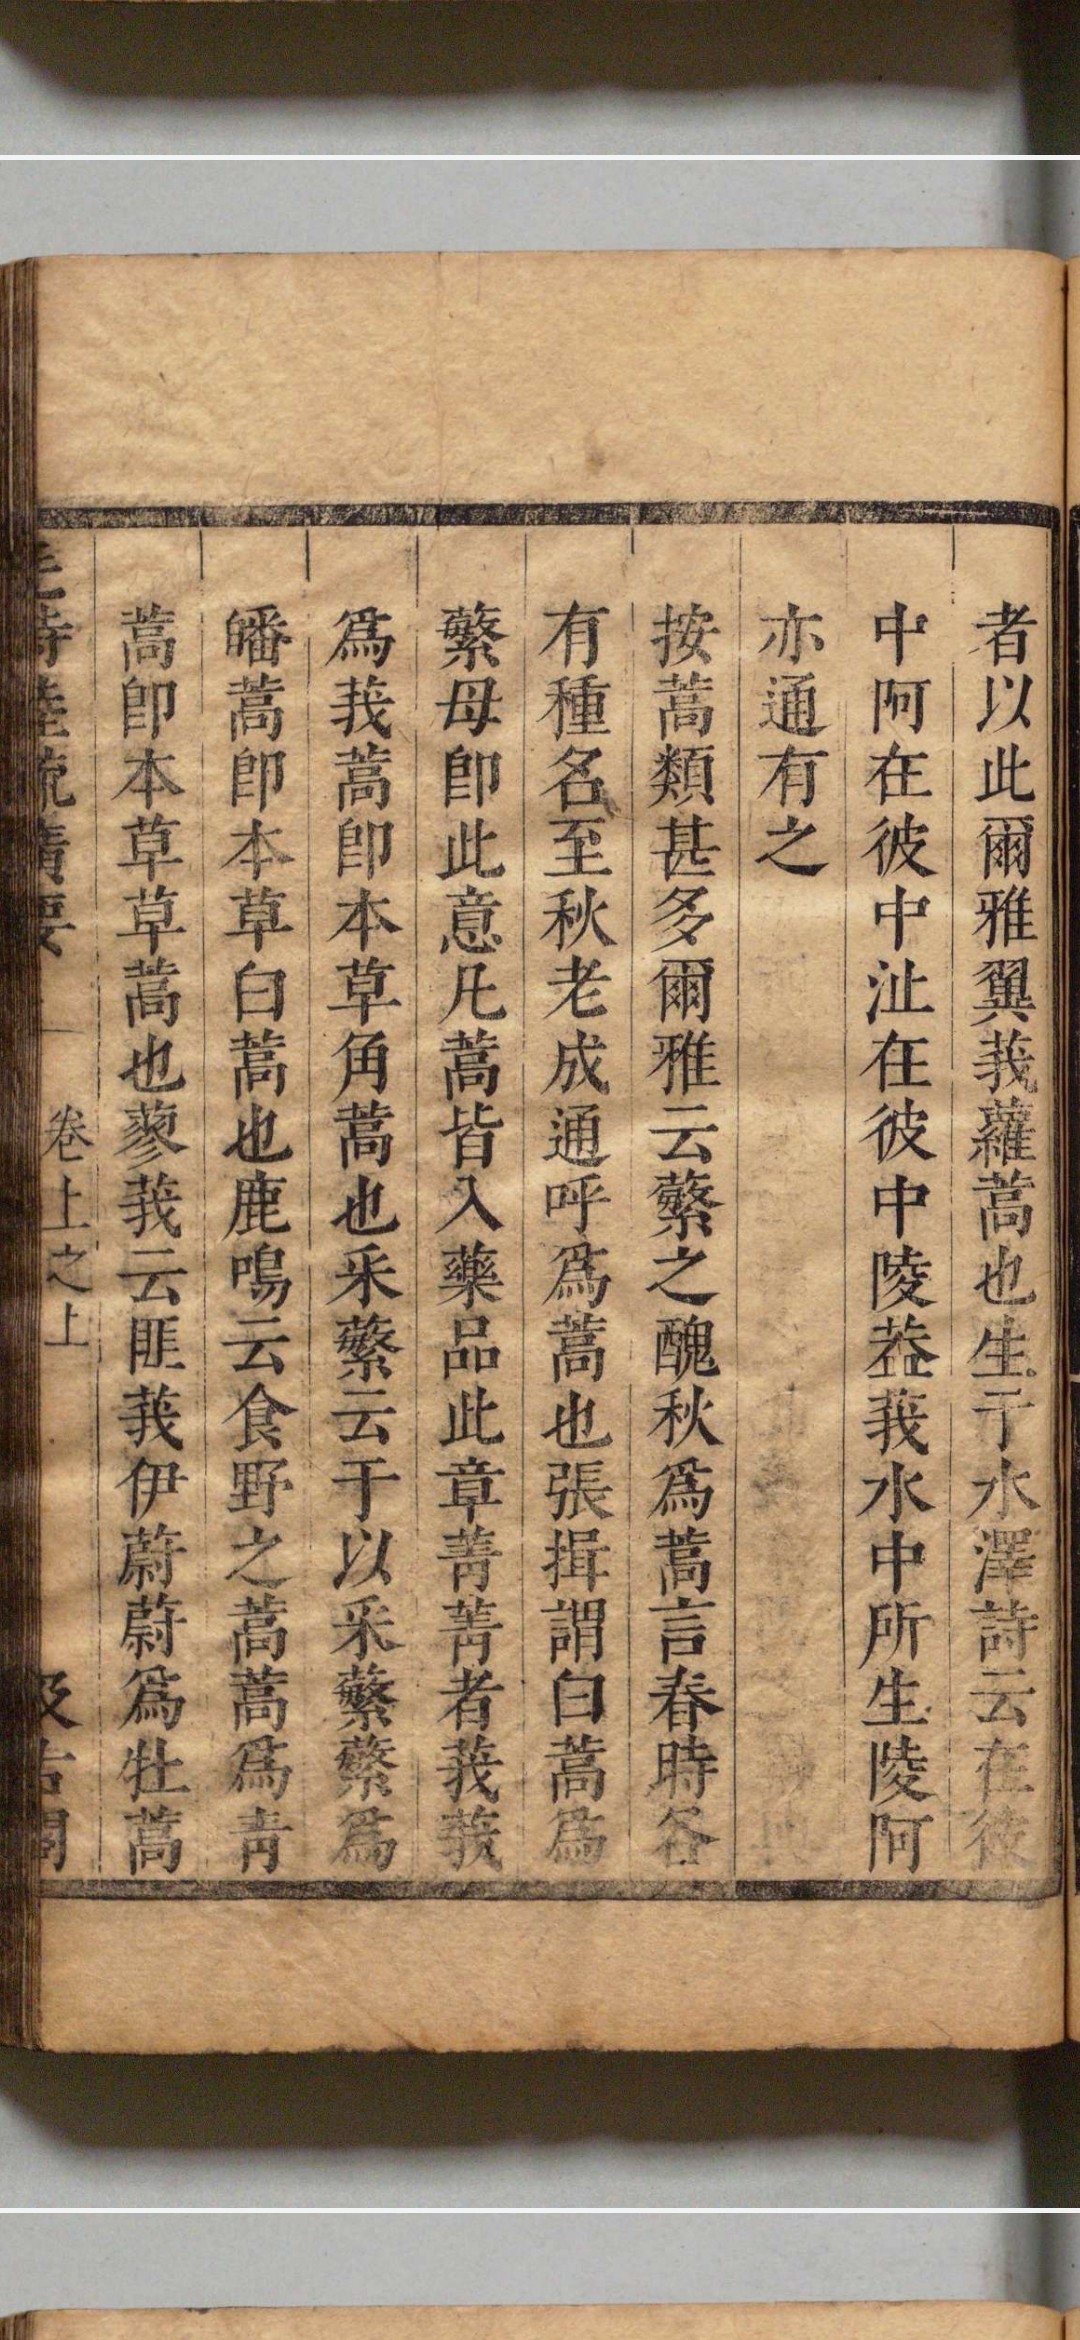 者以此爾雅翼莪蘿蒿也生于水澤詩云在彼
中阿在彼中沚在彼中陵葢莪水中所生陵阿
亦通有之
按蒿類甚多爾雅云蘩之醜秋爲蒿言春時各
有種名至秋老成通呼爲蒿也張揖謂白蒿爲
蘩母卽此意凡蒿皆入藥品此章菁菁者莪莪
爲莪蒿卽本草角蒿也采蘩云于以采蘩蘩爲
皤蒿卽本草白蒿也鹿鳴云食野之蒿蒿爲青
蒿卽本草草蒿也蓼莪云匪莪伊蔚蔚爲牡蒿
毛詩陸疏廣要 卷上之上 汲古閣